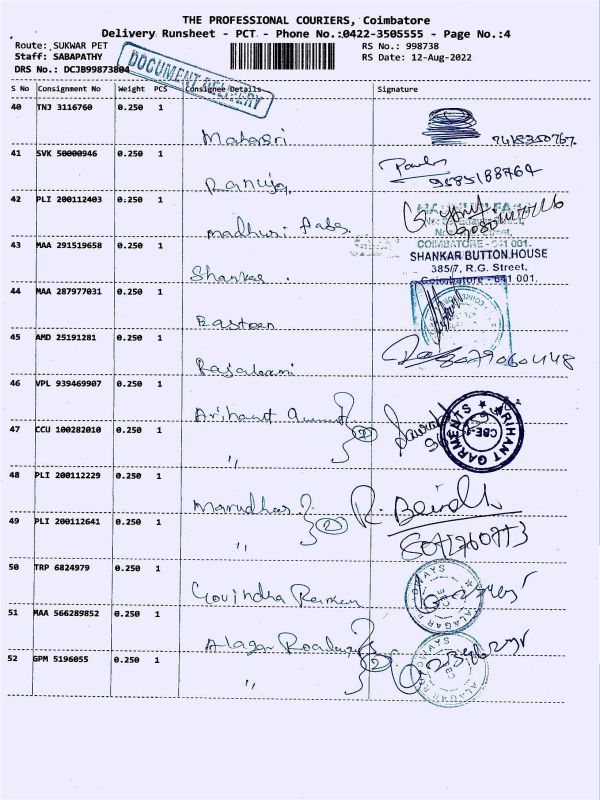 THE PROFESSIONAL COURIERS, Coimbatore
Delivery Runsheet - PCT - Phone No.:0422-3505555 - Page No.:4
Route: SUKWAR PET RS No.: 998738
Staff: SABAPATHY RS Date: 12-Aug-2022
DRS No.: DCJB99873804
DOCUMENT DELIVERY
S No Consignment No Weight PCS Consignee Details Signature
40 TNJ 3116760 0.250 1
Mahasri
41 SVK 50000946 0.250 1
Ranuja
9585188764
42 PLI 200112403 0.250 1
Madhuri Fabs
43 MAA 291519658 0.250 1
COIMBATORE - 641 001.
SHANKAR BUTTON HOUSE
385/7, R.G. Street,
Coimbatore - 641 001.
Shankar
44 MAA 287977031 0.250 1
Eastern
45 AMD 25191281 0.250 1
Rajalaxmi
46 VPL 939469907 0.250 1
Arihant
ARIHANT GARMENTS
CBE-1
47 CCU 100282010 0.250 1
2
"
48 PLI 200112229 0.250 1
Marudhar
49 PLI 200112641 0.250 1
2
"
50 TRP 6824979 0.250 1
Govindha Raman
ALAGAR ROADWAYS
51 MAA 566289852 0.250 1
Alagar Roadways
ALAGAR ROADWAYS
52 GPM 5196055 0.250 1
2
"